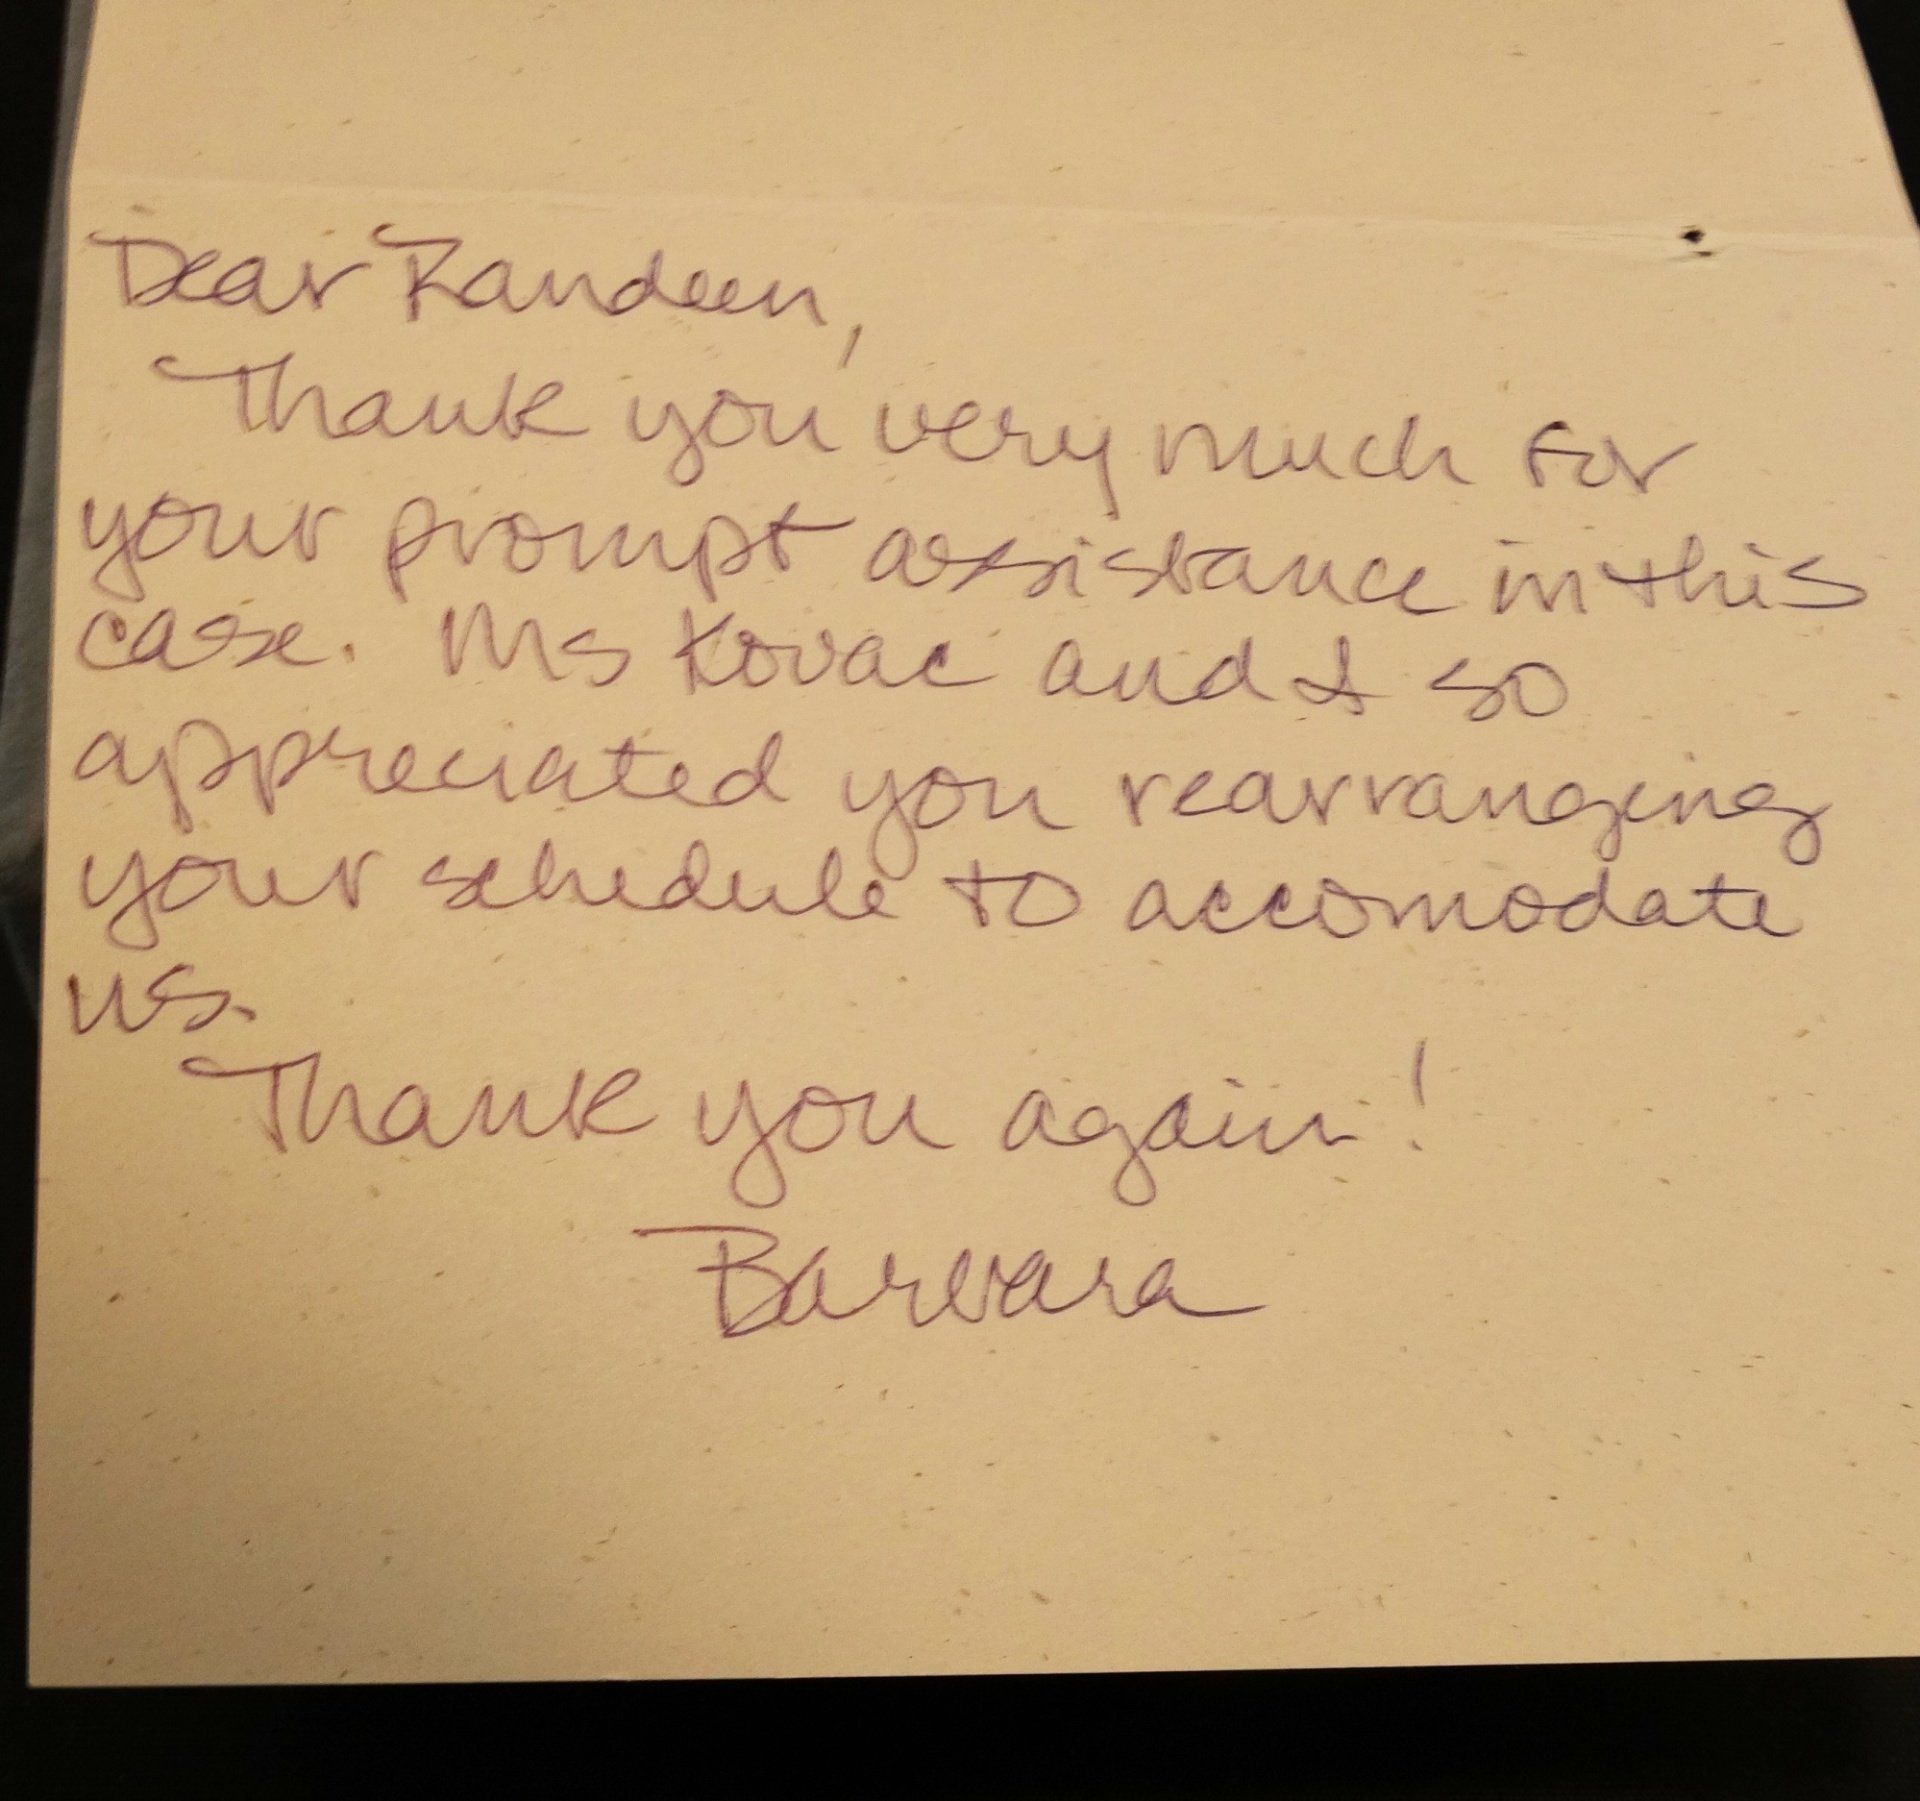 Dear Randeen,
Thank you very much for
your prompt assistance in this
case. Ms Kovac and I so
appreciated you rearranging
your schedule to accomodate
us.
Thank you again!
Barbara